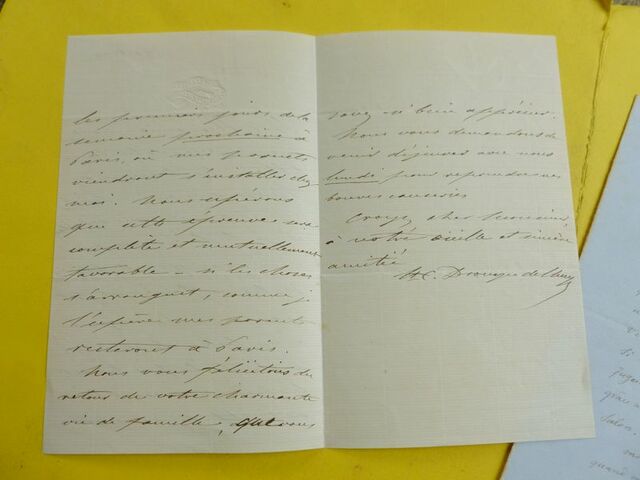 les premiers jours de la
semaine prochaine à
Paris, où mes parents
viendront s'installer chez
moi. Nous espérons
que cette épreuve sera
complète et mutuellement
favorable – si les choses
s'arrangent, comme je
l'espère mes parents
resteront à Paris.
Nous vous félicitons du
retour de votre charmante
vie de famille, que vous
savez si bien apprécier.
Nous vous demandons de
venir déjeuner avec nous
lundi pour reprendre nos
bonnes causeries
Croyez cher Monsieur,
à votre vieille et sincère
amitié
Drouyn de Lhuys
Si
quand